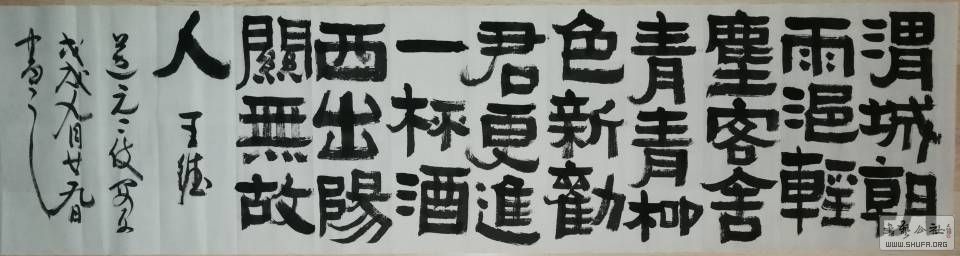 渭城朝
雨浥輕
塵客舍
青青柳
色新勸
君更進
一杯酒
西出陽
關無故
人 王維
送元二使安西
戊戌八月廿九日
WWW.SHUFA.ORG